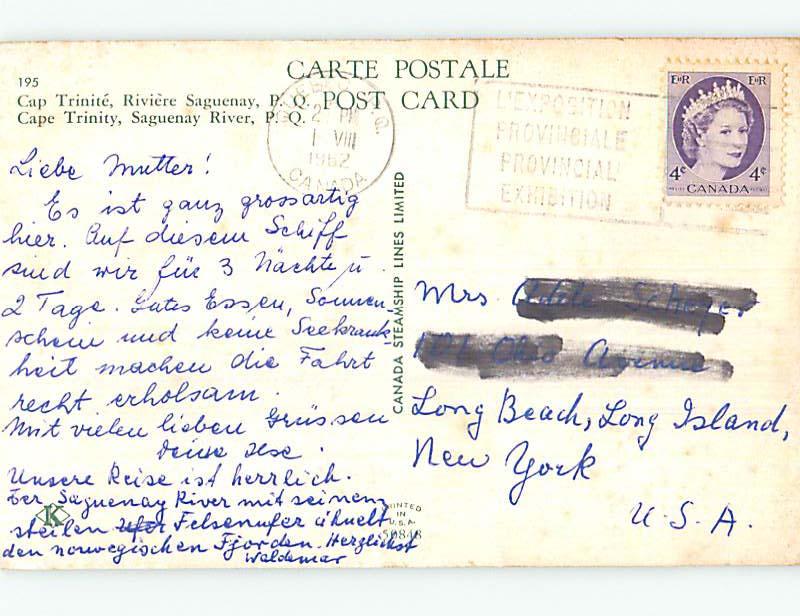 CARTE POSTALE
POST CARD
195
Cap Trinité, Rivière Saguenay, P. Q.
Cape Trinity, Saguenay River, P. Q.
2 PM
1 VIII
1962
CANADA
L'EXPOSITION
PROVINCIALE
PROVINCIAL
EXHIBITION
EIIR EIIR
4¢ 4¢
CANADA
Liebe Mutter!
Es ist ganz grossartig
hier. Auf diesem Schiff
sind wir für 3 Nächte u.
2 Tage. Gutes Essen, Sonnen-
schein und keine Seekrank-
heit machen die Fahrt
recht erholsam.
Mit vielen lieben Grüssen
Deine Ilse.
Unsere Reise ist herrlich.
Der Saguenay River mit seinen
steilen Felsenufer ähnelt
den norwegischen Fjorden. Herzlichst
Waldemar
CANADA STEAMSHIP LINES LIMITED
Mrs
Avenue
Long Beach, Long Island,
New York
U.S.A.
K
PRINTED
IN
U.S.A.